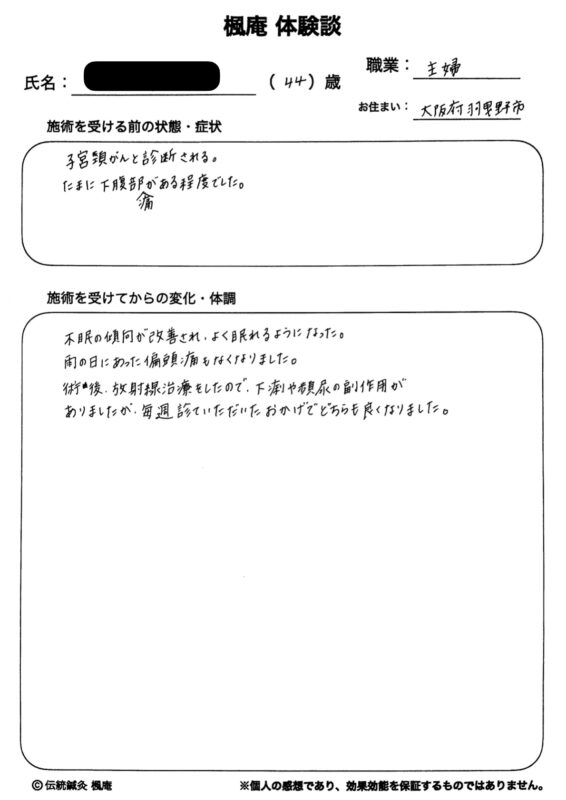 楓庵 体験談
氏名：
（44）歳
職業： 主婦
お住まい： 大阪府羽曳野市
施術を受ける前の状態・症状
子宮頸がんと診断される。
たまに下腹部痛がある程度でした。
施術を受けてからの変化・体調
不眠の傾向が改善され、よく眠れるようになった。
雨の日にあった偏頭痛もなくなりました。
術後、放射線治療をしたので、下痢や頻尿の副作用が
ありましたが、毎週診ていただいたおかげでどちらも良くなりました。
©伝統鍼灸 楓庵
※個人の感想であり、効果効能を保証するものではありません。